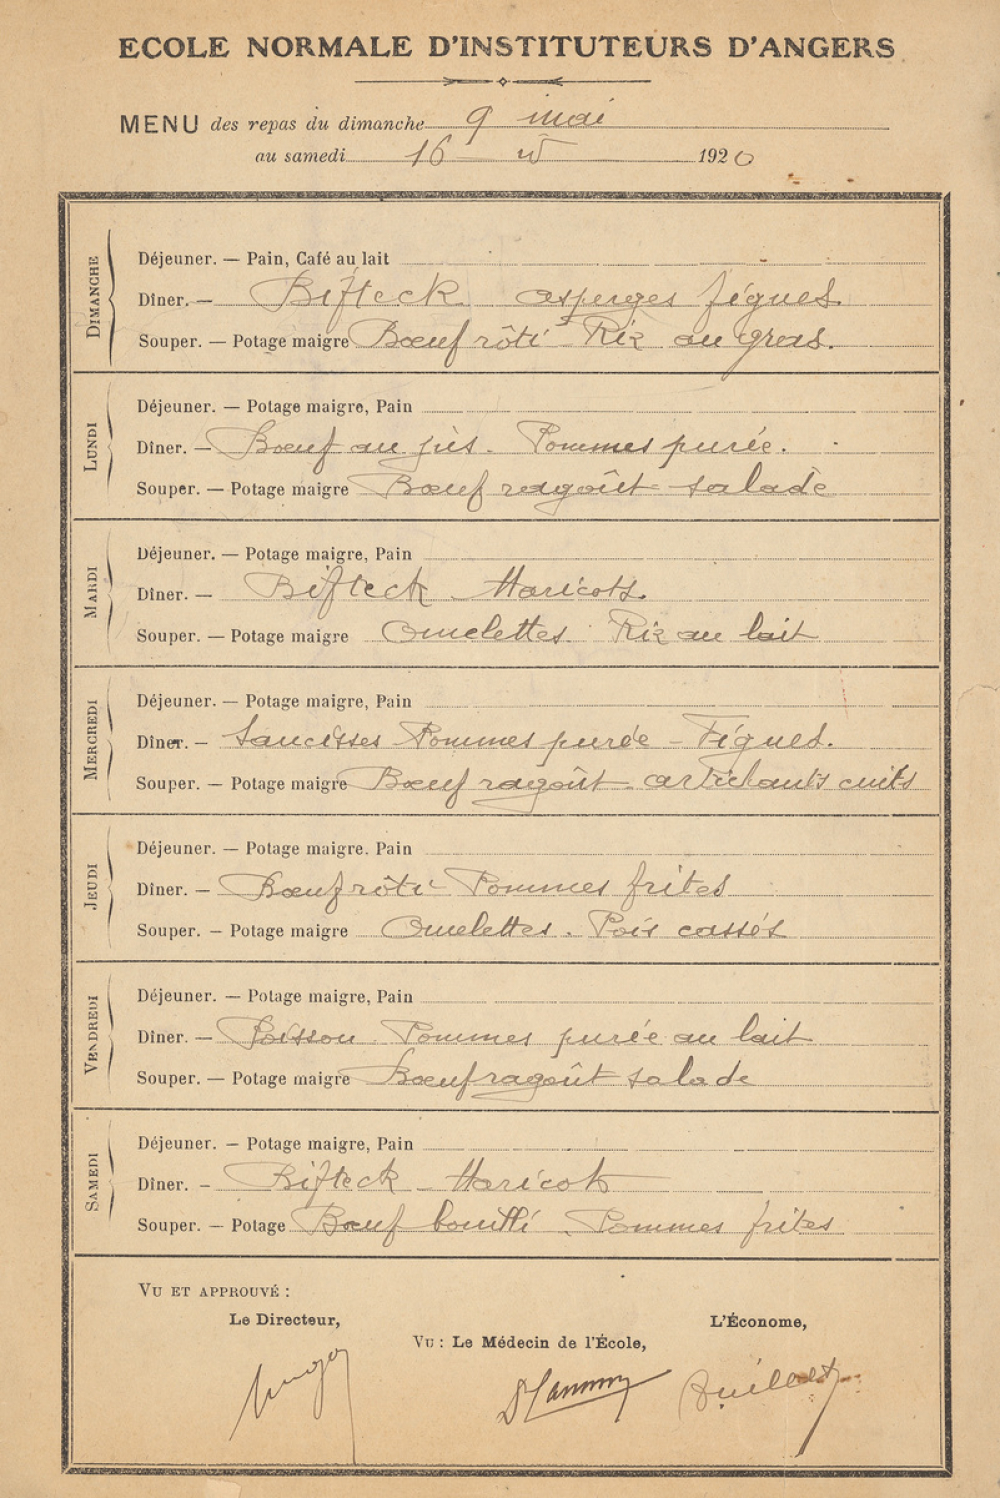 ECOLE NORMALE D'INSTITUTEURS D'ANGERS
MENU des repas du dimanche 9 mai
au samedi 16 — d° — 1920
DIMANCHE
Déjeuner. — Pain, Café au lait
Dîner. — Bifteck asperges figues
Souper. — Potage maigre Bœuf rôti Riz au gras.
LUNDI
Déjeuner. — Potage maigre, Pain
Dîner. — Bœuf au jus. Pommes purée.
Souper. — Potage maigre Bœuf ragoût salade
MARDI
Déjeuner. — Potage maigre, Pain
Dîner. — Bifteck Haricots.
Souper. — Potage maigre Omelettes. Riz au lait
MERCREDI
Déjeuner. — Potage maigre, Pain
Dîner. — Saucisses Pommes purée – Figues.
Souper. — Potage maigre Bœuf ragoût artichauts cuits
JEUDI
Déjeuner. — Potage maigre. Pain
Dîner. — Bœuf rôti Pommes frites
Souper. — Potage maigre Omelettes. Pois cassés
VENDREDI
Déjeuner. — Potage maigre, Pain
Dîner. — Poisson Pommes purée au lait
Souper. — Potage maigre Bœuf ragoût salade
SAMEDI
Déjeuner. — Potage maigre, Pain
Dîner. – Bifteck – Haricots
Souper. — Potage Bœuf bouilli. Pommes frites
VU ET APPROUVÉ :
Le Directeur,
L'Économe,
VU : Le Médecin de l'École,